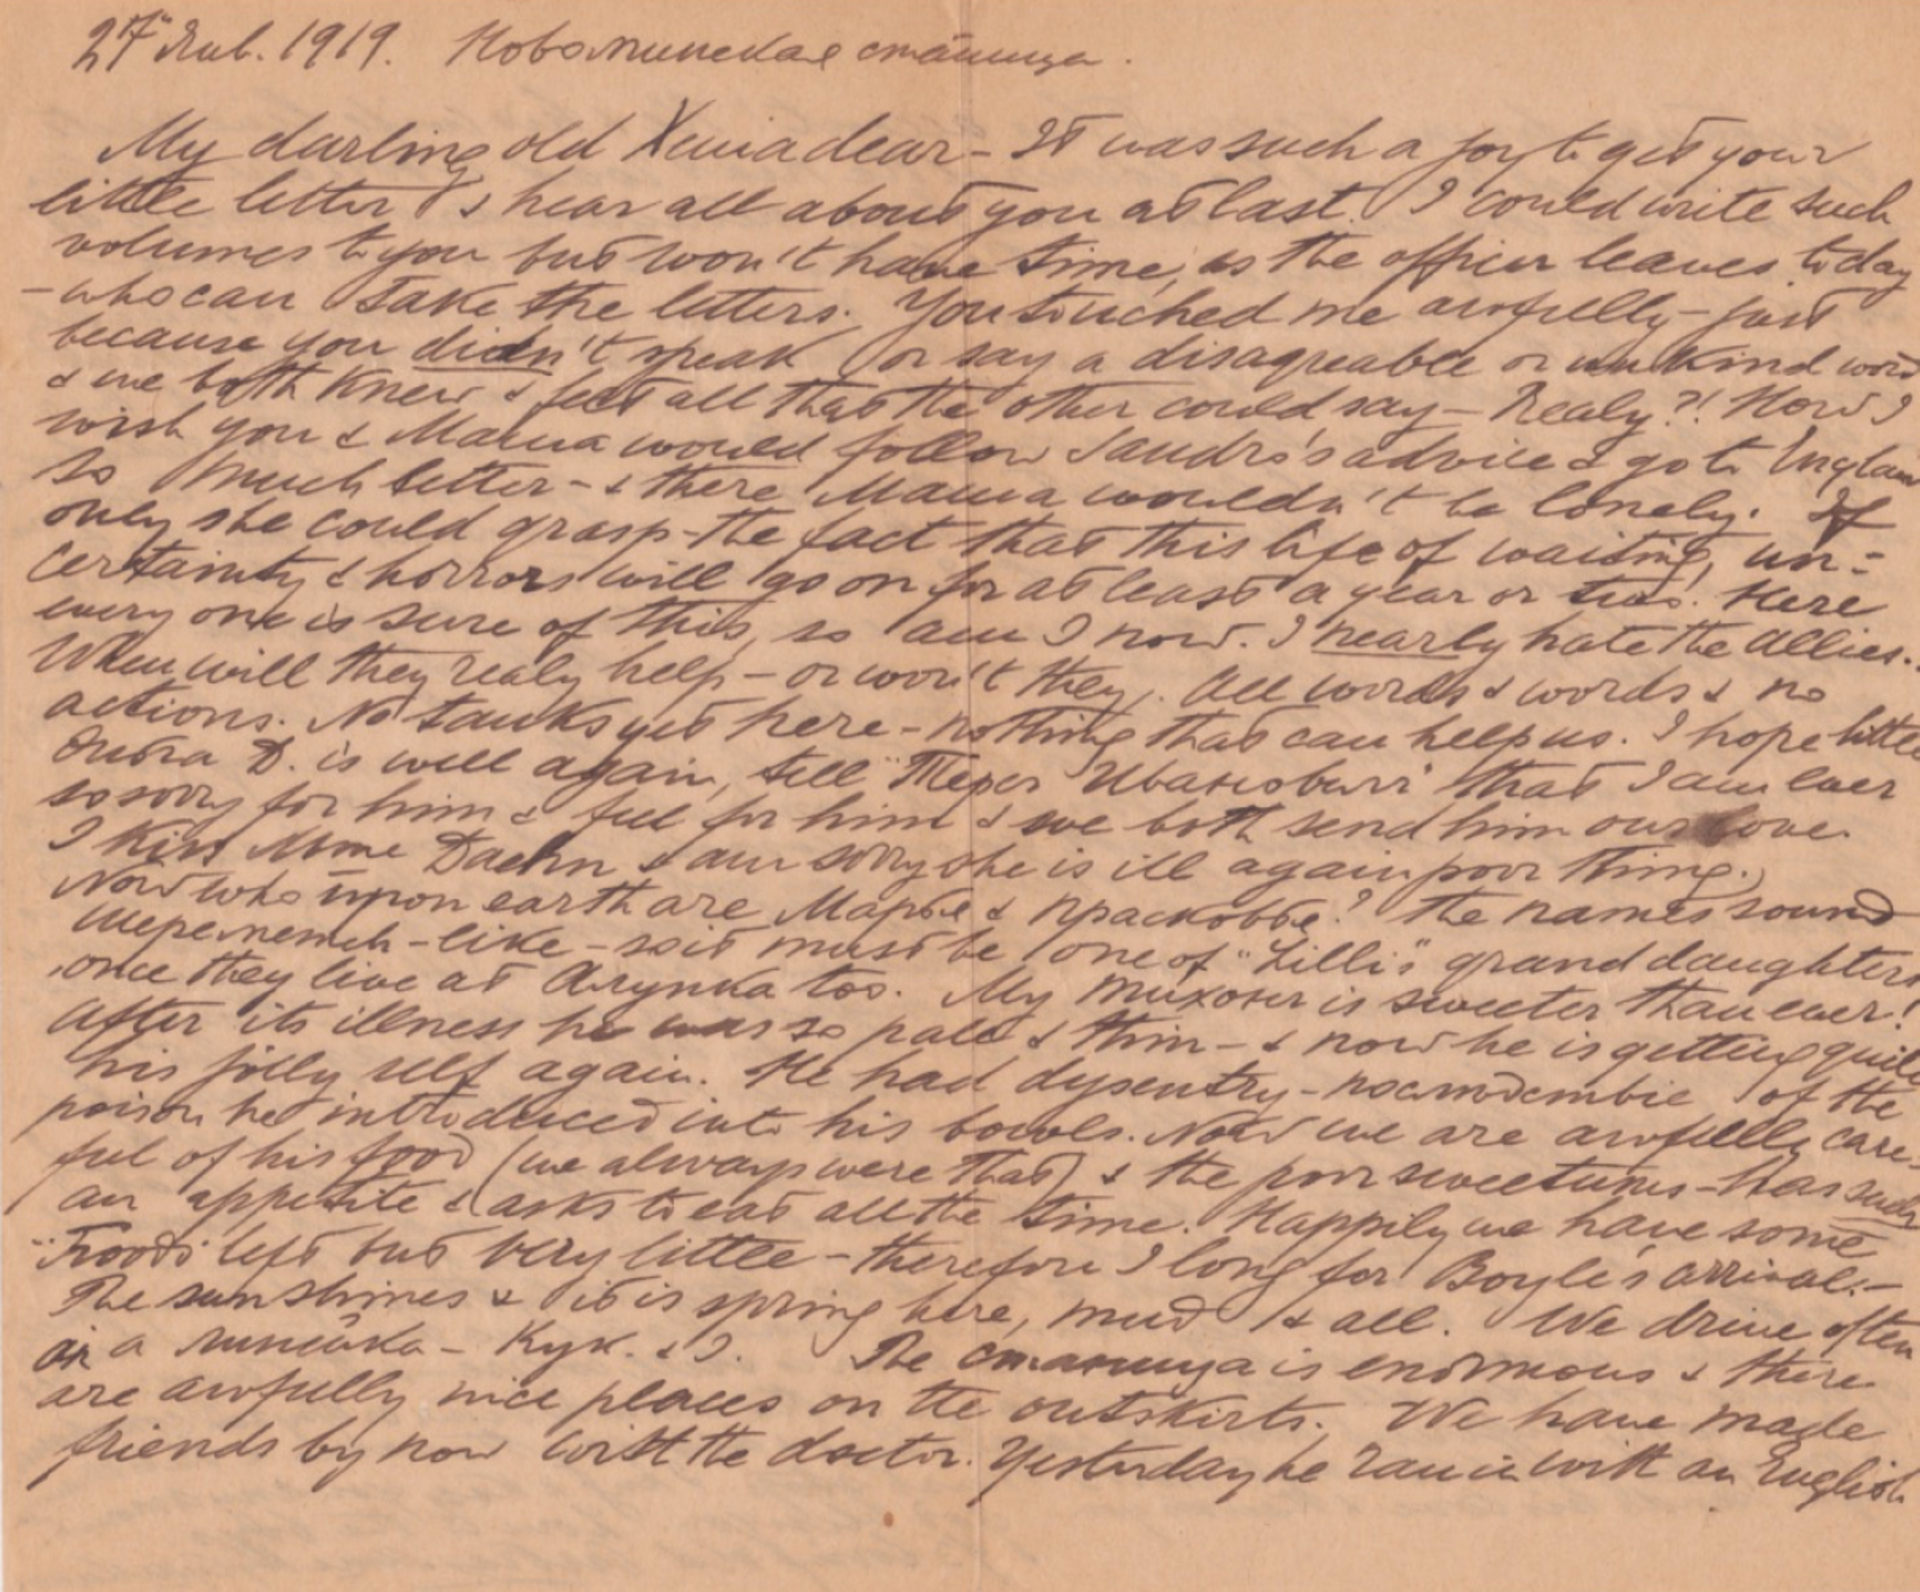 27 Янв. 1919. Новоминская станица.
My darling old Xenia dear - It was such a joy to get your
little letter & hear all about you at last. I could write such
volumes to you but won't have time, as the officer leaves today
- who can take the letters. You touched me awfully - just
because you didn't speak or say a disagreable or unkind word
& we both knew & felt all that the other could say - Realy?! How I
wish you & Mama would follow Sandro's advice & go to England
so much better - & there Mama wouldn't be lonely. If
only she could grasp the fact that this life of waiting, un=
certainty & horrors will go on for at least a year or two. Here
every one is sure of this, so am I now. I nearly hate the Allies.
When will they realy help - or won't they. All words & words & no
actions. No tanks yet here - nothing that can help us. I hope little
D. is well again, tell Ивановичи that I am ever
so sorry for him & feel for him & we both send him our love.
I kiss Mme Daehn & am sorry she is ill again poor thing.
Now who upon earth are Марье & Прасковье? The names sound
Шереметев-like - so it must be one of "Lilli's" grand daughters
once they live at too. My Тихон is sweeter than ever!
After its illness he was so pale & thin - & now he is getting quite
his jolly self again. He had dysentry - of the
poison he introduced into his bowels. Now we are awfully care-
ful of his food (we always were that) & the poor sweetums - has such
an appetite & asks to eat all the time. Happily we have some
"Food" left but very little - therefore I long for Boyle's arrival. -
The sun shines & it is spring here, mud & all. We drive often
in a линейка - Кук. & I. The станица is enormous & there
are awfully nice places on the outskirts. We have made
friends by now with the doctor. Yesterday he ran in with an English